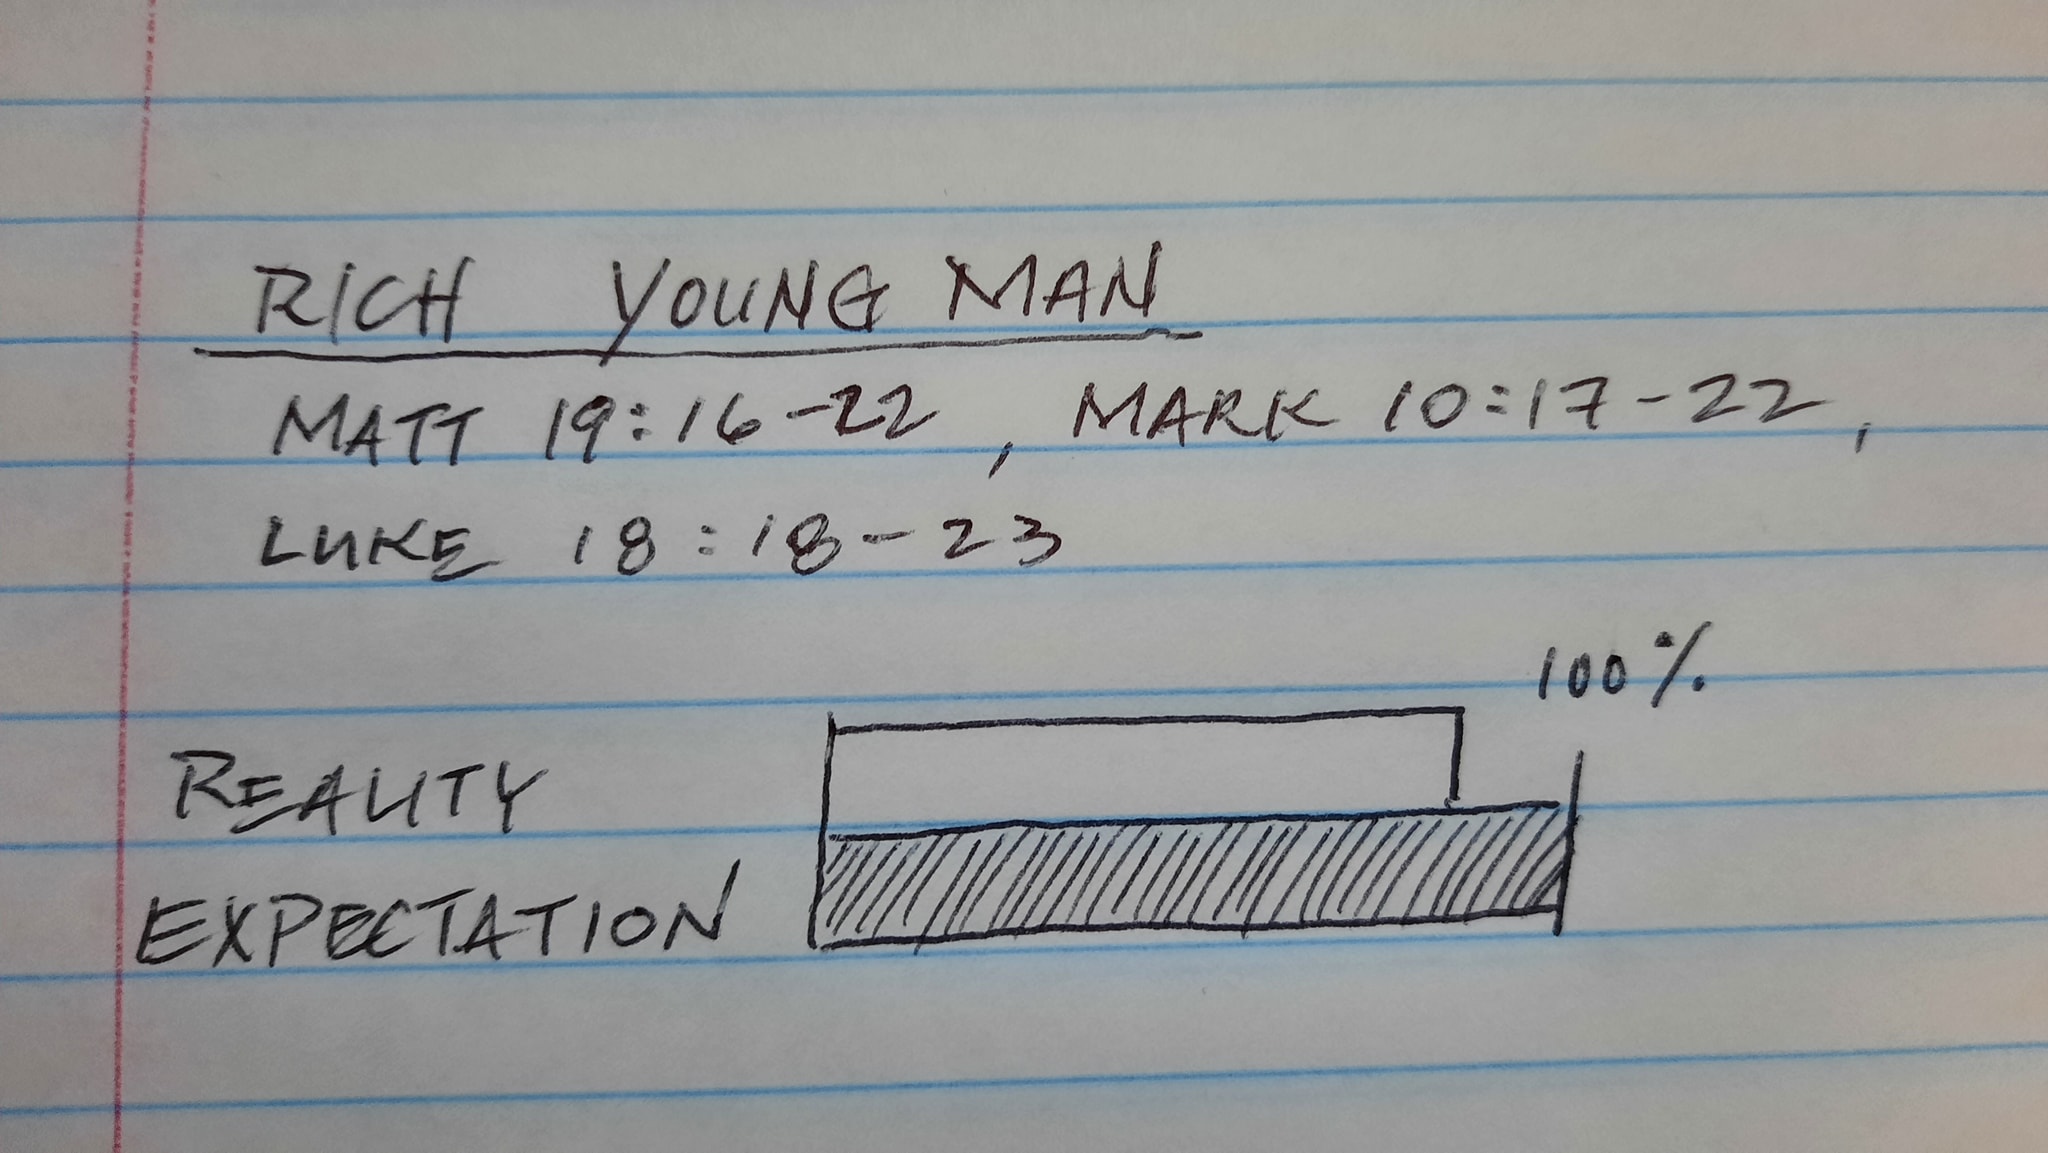 RICH YOUNG MAN
MATT 19:16-22, MARK 10:17-22,
LUKE 18:18-23
100%
REALITY
EXPECTATION